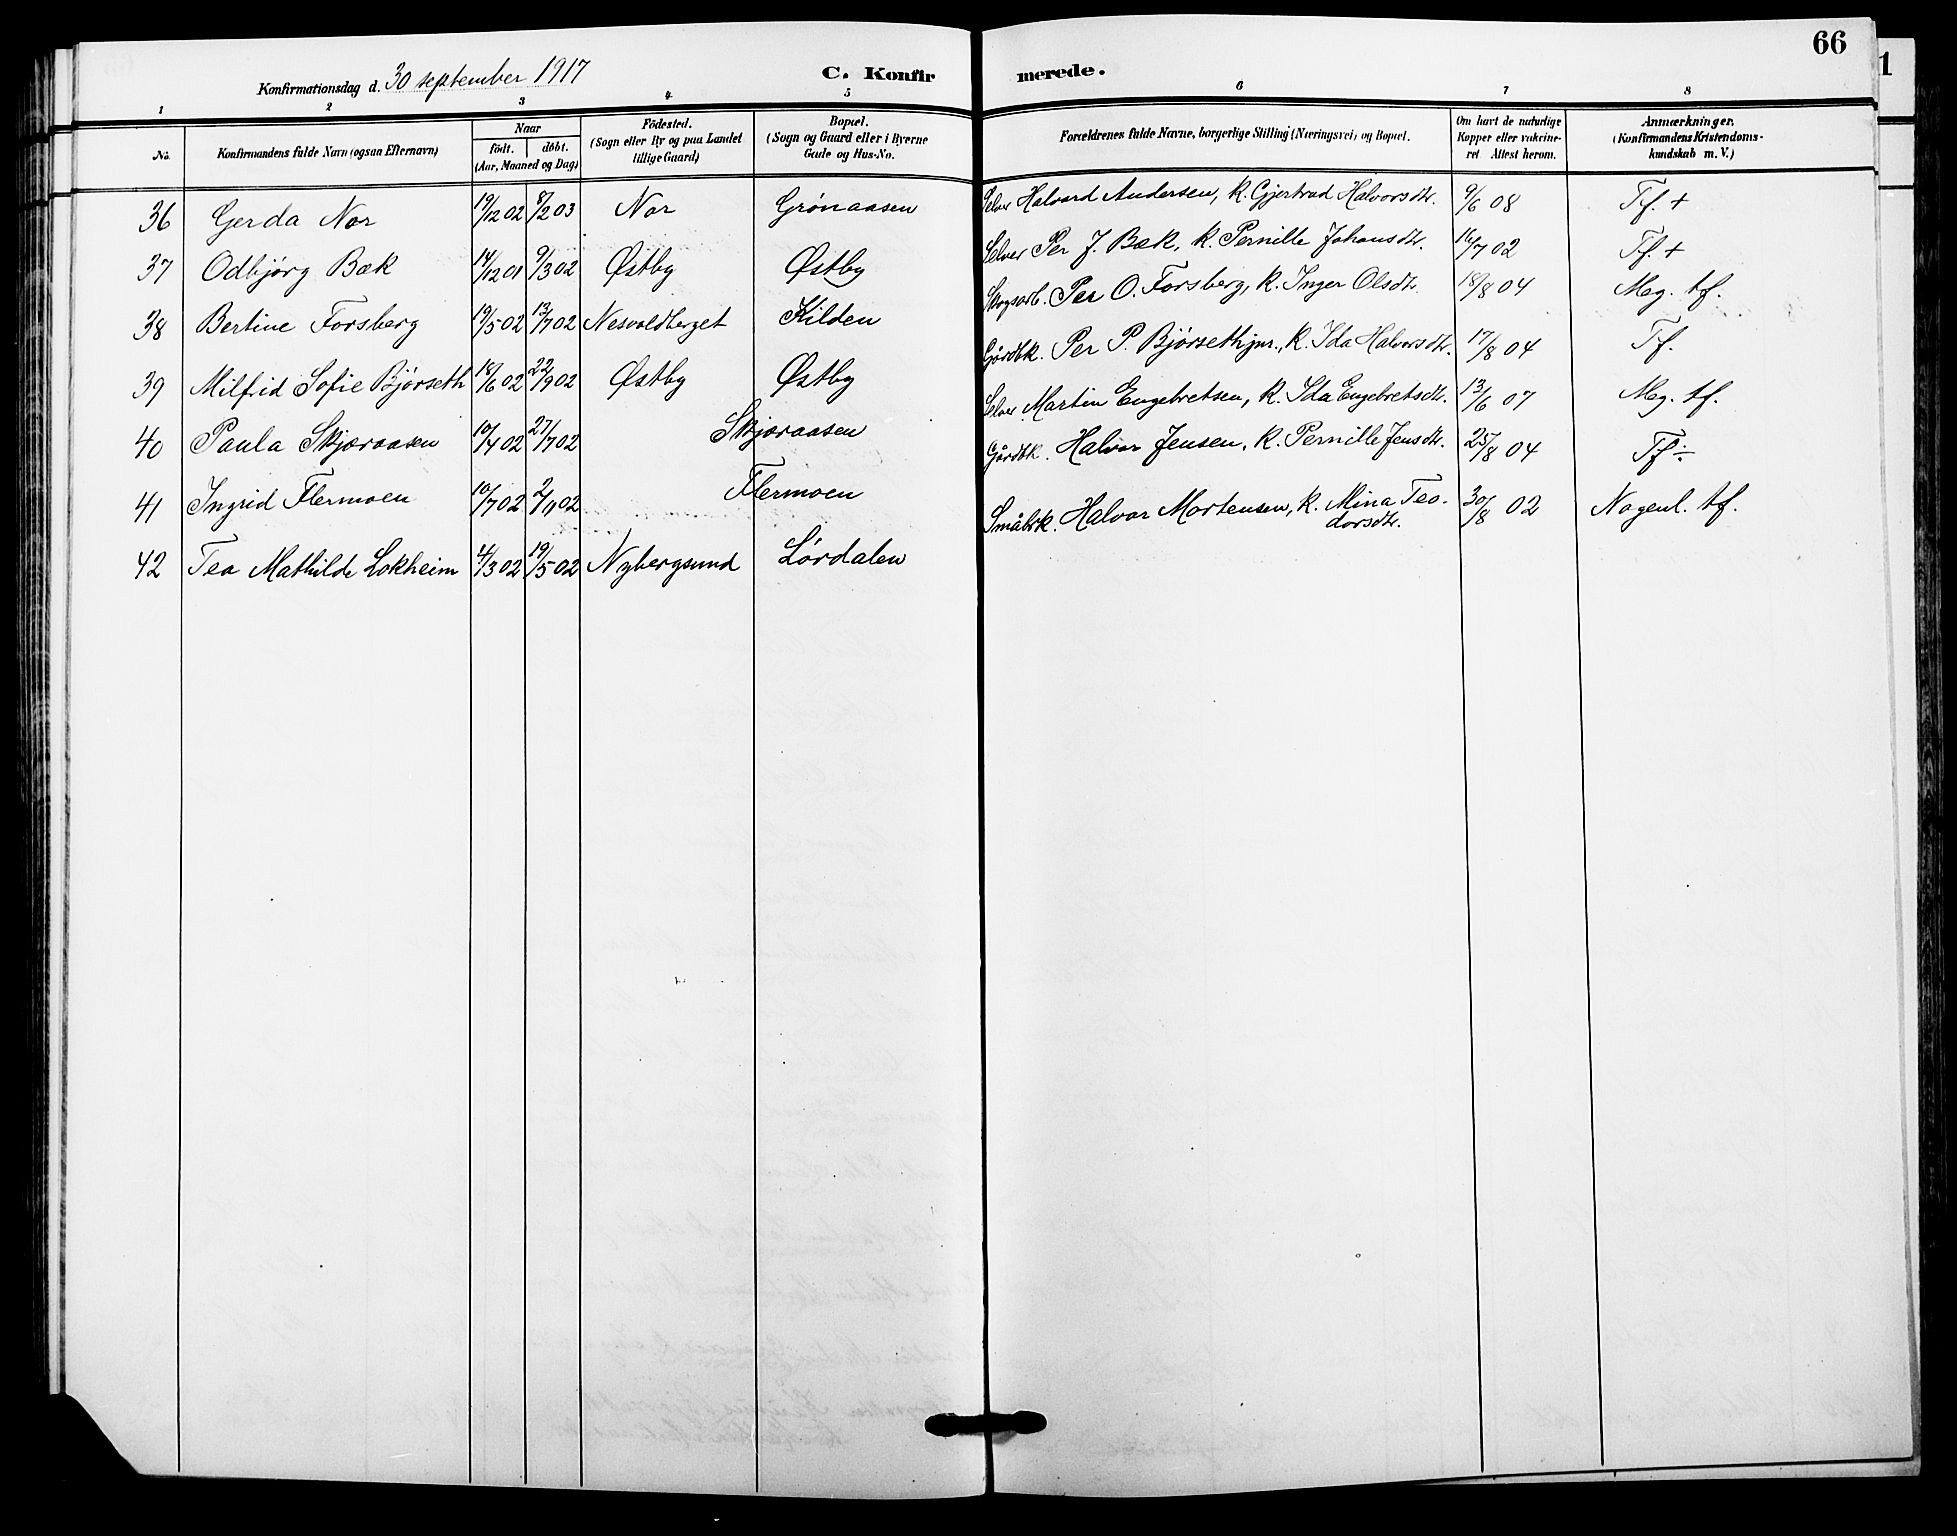 66
1
Konfirmationsdag d. 30 september 1917
C. Konfir merede.
1 2 3 4 5 6 7 8
No. Konfirmandens fulde Navn (ogsaa Efternavn) Naar født. døbt. (Aar, Maaned og Dag) Fødested. (Sogn eller By og paa Landet tillige Gaard) Bopæl. (Sogn og Gaard eller i Byerne Gade og Hus-No. Forældrenes fulde Navne, borgerlige Stilling (Næringsvei) og Bopæl. Om havt de naturlige Kopper eller vakcineret Attest herom. Anmærkninger. (Konfirmandens Kristendomskundskab m. V.)
36 Gerda Nor 19/12 02 8/2 03 Nor Grønaasen Selvei Halvard Andersen, k. Gjertrud Halvorsdtr. 9/6 08 Tf. +
37 Odbjørg Bæk 14/12 01 9/3 02 Østby Østby Selvei Per J. Bæk, k. Pernille Johansdtr. 16/7 02 Tf. +
38 Bertine Forsberg 19/5 02 13/7 02 Nesvoldberget Kilden Skogsarb. Per O. Forsberg, k. Inger Olsdtr. 18/8 04 Meg. tf.
39 Milfrid Sofie Bjørseth 18/6 02 22/9 02 Østby Østby Gårdbk. Per P. Bjørseth jnr., k. Ida Halvorsdtr. 17/8 04 Tf.
40 Paula Skjæraasen 10/4 02 27/7 02 Skjæraasen Selvei Martin Engebretsen, k. Ida Engebretsdtr. 13/6 07 Meg. tf.
41 Ingrid Flermoen 10/7 02 2/11 02 Flermoen Gårdbk. Halvor Jensen, k. Pernille Jensdtr. 25/8 04 Tf ÷
42 Tea Mathilde Lokheim 4/3 02 19/5 02 Nybergsund Lørdalen Småbrk. Halvor Mortensen, k. Mina Teodorsdtr. 30/8 02 Nogenl. tf.